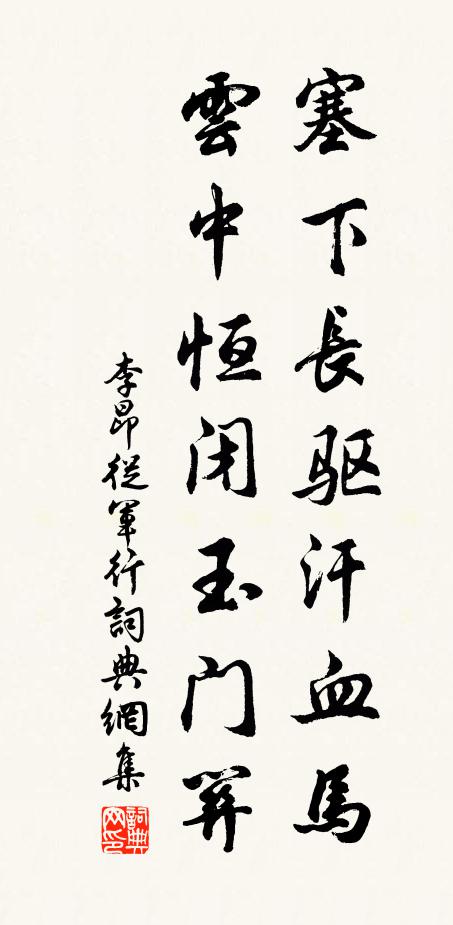 塞下長驱汗血馬
雲中恒闭玉门關
李昂從軍行詞典網集
詞典网印